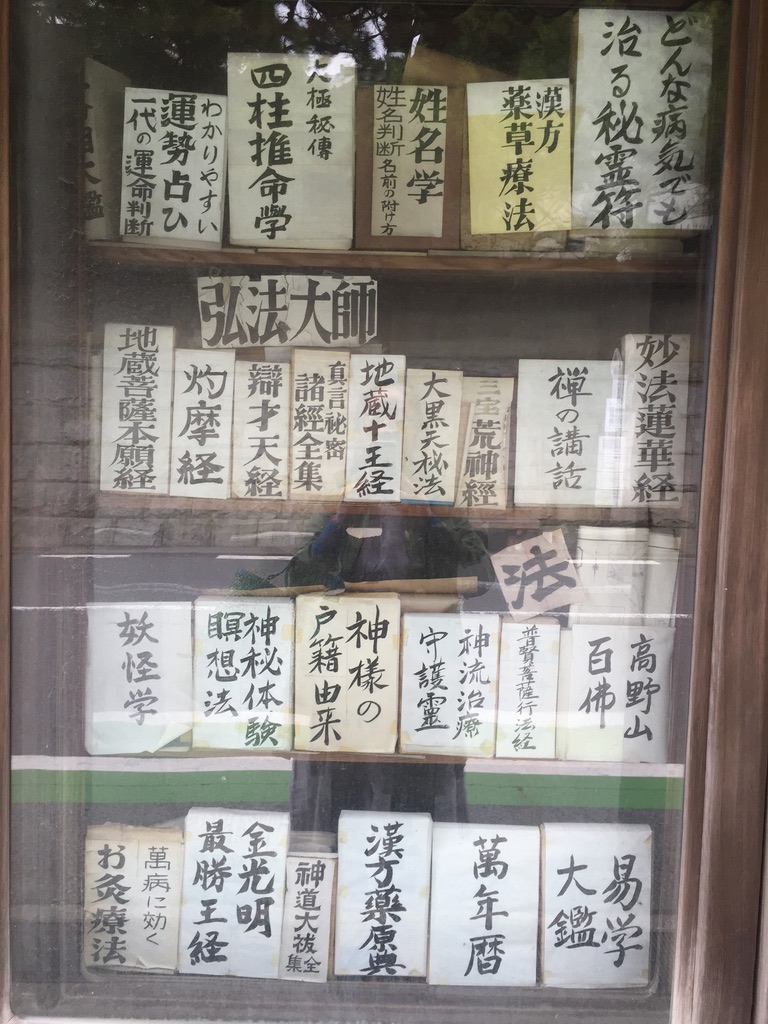 どんな病気でも
治る秘霊符
漢方
薬草療法
姓名学
姓名判断名前の附け方
極秘傳
四柱推命學
わかりやすい
運勢占ひ
一代の運命判断
弘法大師
妙法蓮華経
禅の講話
三宝荒神經
大黒天秘法
地蔵十王経
真言祕密
諸經全集
辯才天経
灼摩経
地蔵菩薩本願経
法
高野山
百佛
普賢菩薩行法経
神流治療
守護霊
神様の
戸籍由来
神秘体験
瞑想法
妖怪学
易学
大鑑
萬年暦
漢方薬原典
神道大祓全集
金光明
最勝王経
萬病に効く
お灸療法